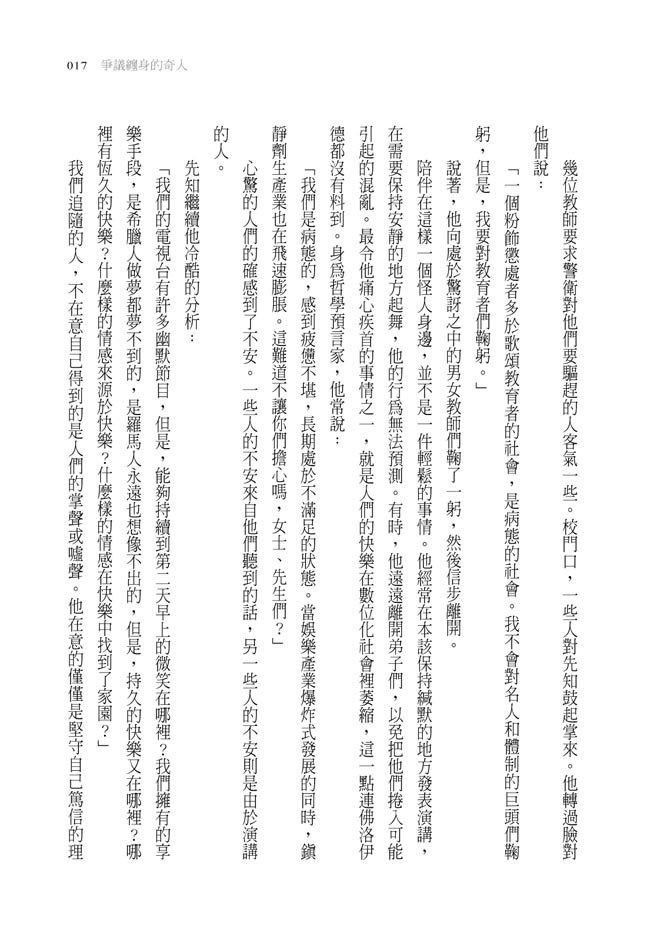 017 爭議纏身的奇人
幾位教師要求警衛對他們要驅趕的人客氣一些。校門口，一些人對先知鼓起掌來。他轉過臉對
他們說：
「一個粉飾懲處者多於歌頌教育者的社會，是病態的社會。我不會對名人和體制的巨頭們鞠
躬，但是，我要對教育者們鞠躬。」
說著，他向處於驚訝之中的男女教師們鞠了一躬，然後信步離開。
陪伴在這樣一個怪人身邊，並不是一件輕鬆的事情。他經常在本該保持緘默的地方發表演講，
在需要保持安靜的地方起舞，他的行為無法預測。有時，他遠遠離開弟子們，以免把他們捲入可能
引起的混亂。最令他痛心疾首的事情之一，就是人們的快樂在數位化社會裡萎縮，這一點連佛洛伊
德都沒有料到。身為哲學預言家，他常說：
「我們是病態的，感到疲憊不堪，長期處於不滿足的狀態。當娛樂產業爆炸式發展的同時，鎮
靜劑生產業也在飛速膨脹。這難道不讓你們擔心嗎，女士、先生們？」
心驚的人們的確感到了不安。一些人的不安來自他們聽到的話，另一些人的不安則是由於演講
的人。
先知繼續他冷酷的分析：
「我們的電視台有許多幽默節目，但是，能夠持續到第二天早上的微笑在哪裡？我們擁有的享
樂手段，是希臘人做夢都夢不到的，是羅馬人永遠也想像不出的，但是，持久的快樂又在哪裡？哪
裡有恆久的快樂？什麼樣的情感來源於快樂？什麼樣的情感在快樂中找到了家園？」
我們追隨的人，不在意自己得到的是人們的掌聲或噓聲。他在意的僅僅是堅守自己篤信的理